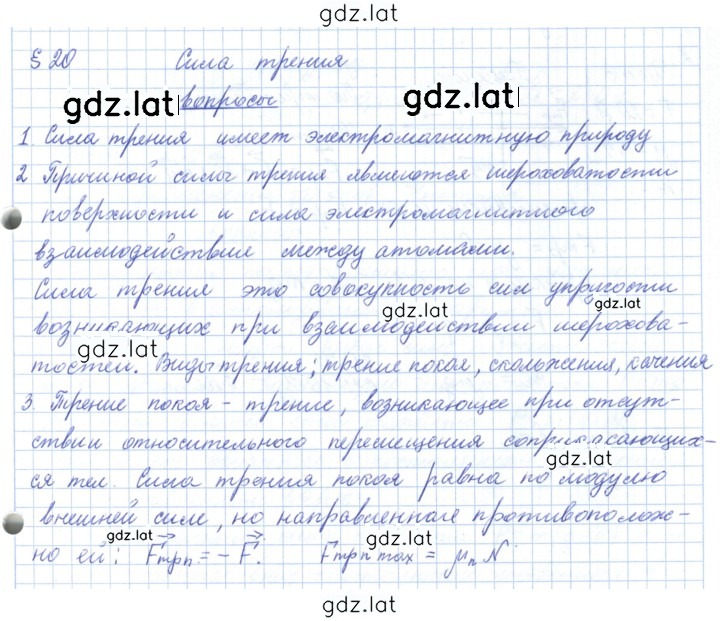 gdz.lat
§ 20 Сила трения
gdz.lat вопросы gdz.lat
1. Сила трения имеет электромагнитную природу
2 Причиной силы трения являются шероховатости
поверхности и сила электромагнитного
взаимодействия между атомами.
Сила трения это совокупность сил упругости
gdz.lat gdz.lat
возникающих при взаимодействии шерохова-
gdz.lat
тостей. Виды трения: трение покоя, скольжения, качения
3. Трение покоя - трение, возникающее при отсут-
ствии относительного перемещения соприкасающих-
gdz.lat
ся тел. Сила трения покоя равна по модулю
внешней силе, но направленная противополож-
gdz.lat gdz.lat
но ей: F⃗трп = - F⃗. F⃗трп max = μп N
gdz.lat